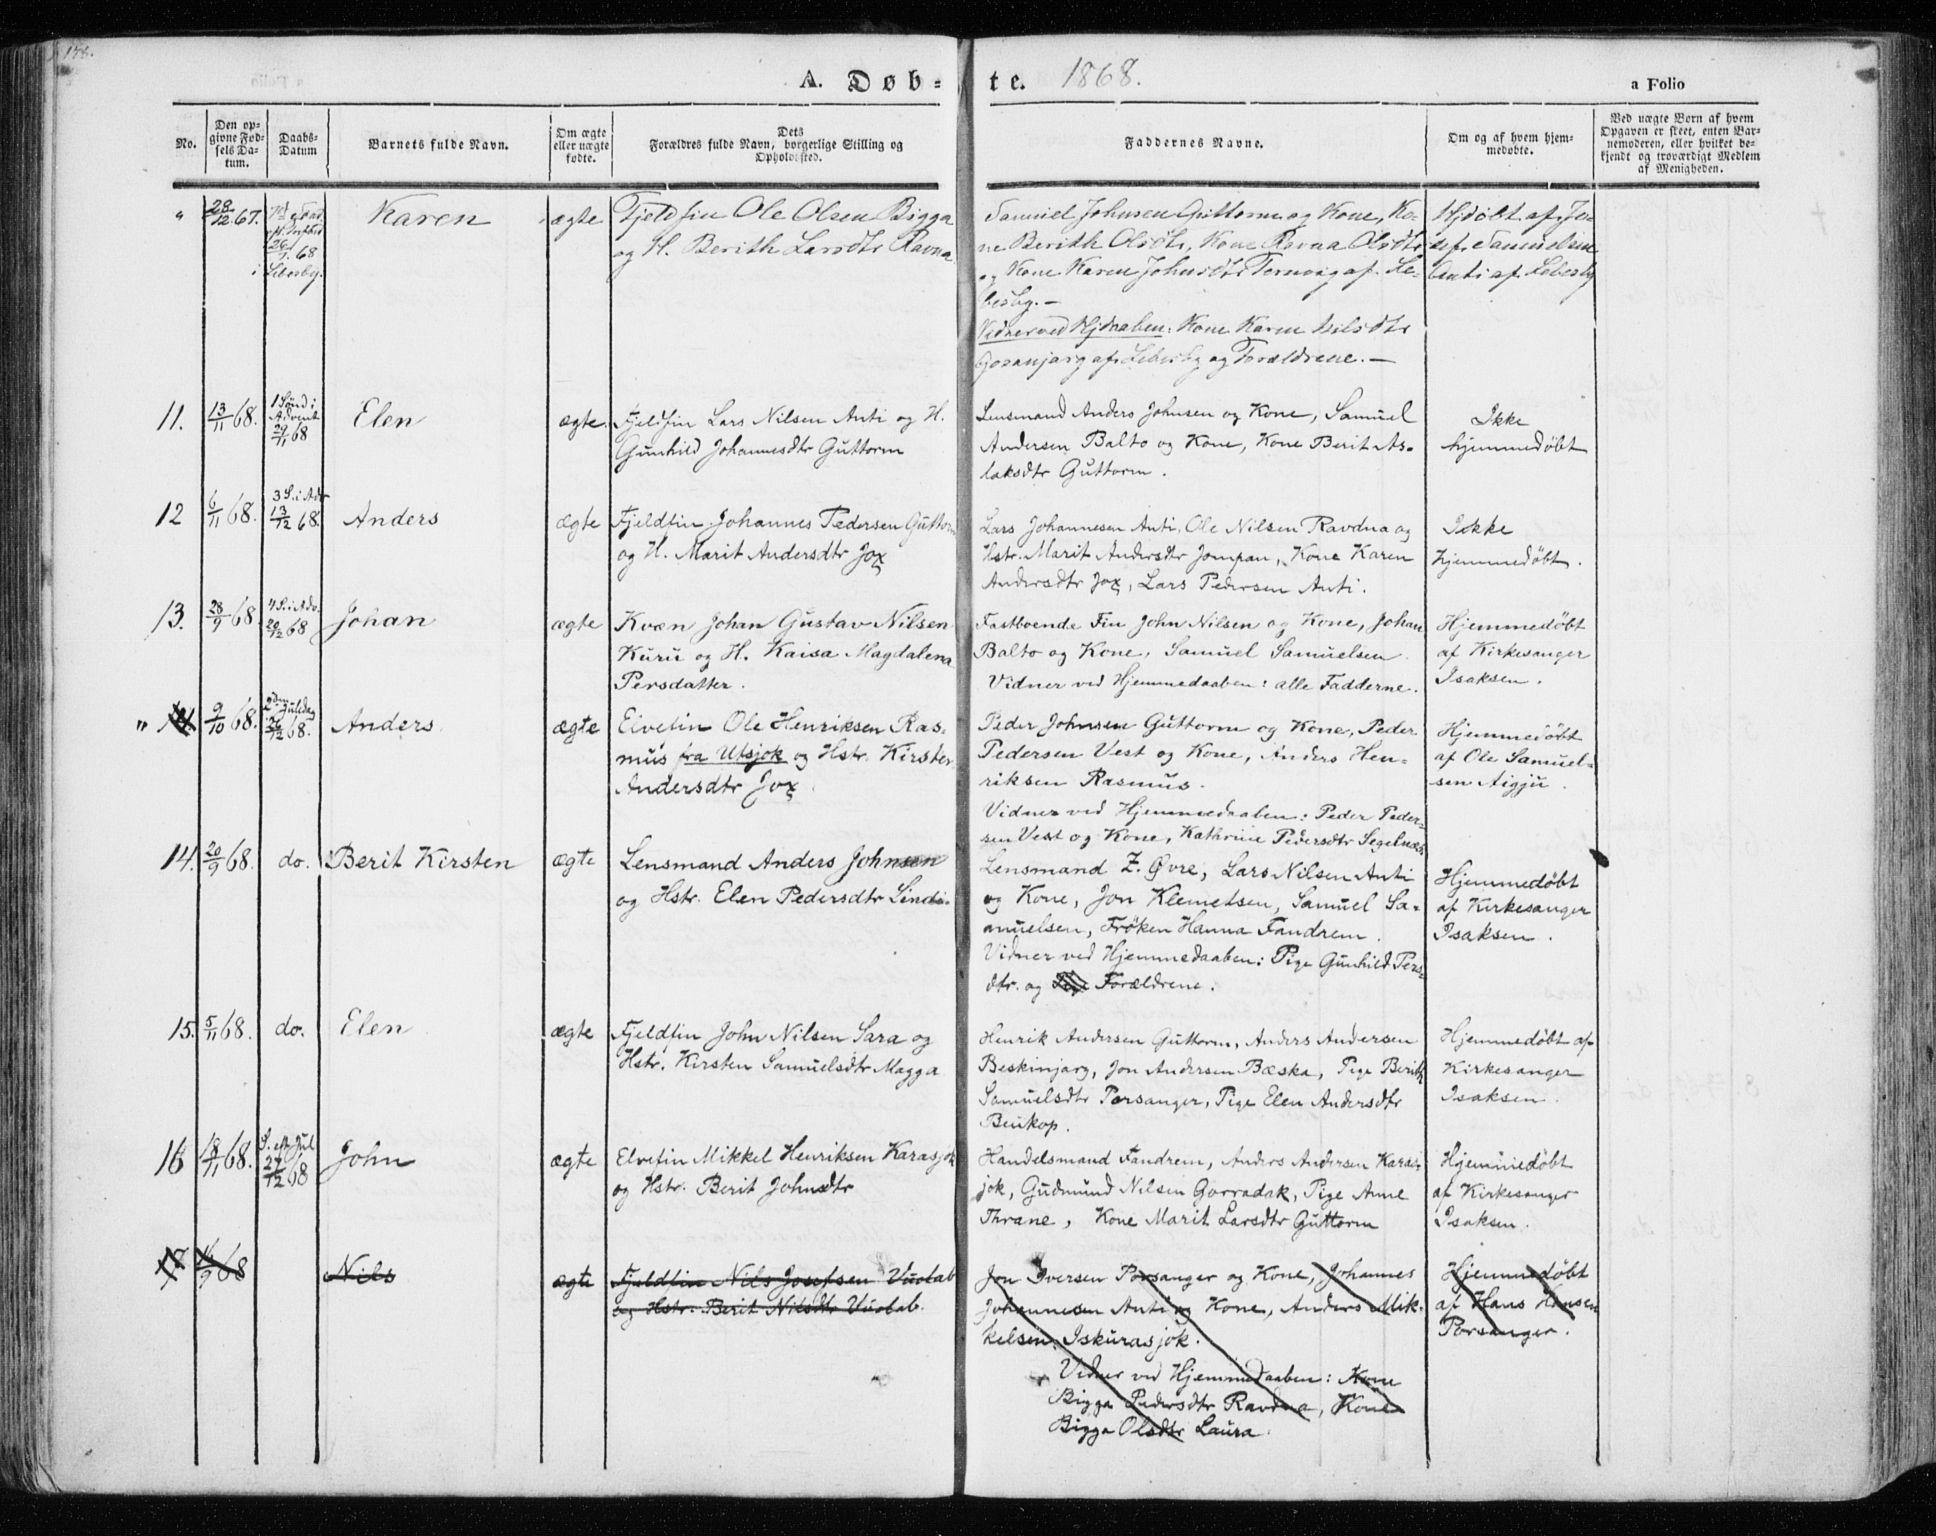 158.
A. Døb-
te. 1868.
a Folio
No.
Den op-
givne Fød-
sels Da-
tum.
Daabs-
Datum
Barnets fulde Navn.
Om ægte
eller uægte
fødte.
Dets
Forældres fulde Navn, borgerlige Stilling og
Opholdssted.
Faddernes Navne.
Om og af hvem hjem-
medøbte.
Ved uægte Børn af hvem
Opgaven er skeet, enten Bar-
nemoderen, eller hvilket be-
kjendt og troværdigt Medlem
af Menigheden.
" 28/12 67.
26/1 68
i Lebesby.
Karen
ægte
Fjeldfin Ole Olsen Bigga
og H. Berith Larsdtr Ravna
Samuel Johnsen Guttorm og Kone, Ko-
ne Berith Olsdtr, Kone Ravna Olsdtr
og Kone Karen Johnsdtr Tornvig af Le-
besby. —
Vidner ved Hjdaaben: Kone Karen Nilsdtr
Gosanjarg af Lebesby og Forældrene. —
Hjdøbt af Jo-
sef Samuelsen
Anti af Lebesby
11. 13/11 68.
1 Sønd i
Advent
29/11 68
Elen
ægte.
Fjeldfin Lars Nilsen Anti og H.
Gunhild Johannesdtr Guttorm
Lensmand Anders Johnsen og Kone, Samuel
Andersen Balto og Kone, Kone Berit As-
laksdtr Guttorm.
Ikke
hjemmedøbt
12 6/11 68.
3 S. i Adv
13/12 68.
Anders
ægte
Fjeldfin Johannes Pedersen Guttorm
og H. Marit Andersdtr Jox
Lars Johannesen Anti, Ole Nilsen Ravdna og
Hstr. Marit Andersdtr Jompan, Kone Karen
Andersdtr Jox, Lars Pedersen Anti.
Ikke
hjemmedøbt.
13. 28/9 68
4 S. i Adv.
20/12 68
Johan
ægte
Kvæn Johan Gustav Nilsen
Kuru og H. Kaisa Magdalena
Persdatter.
Fastboende Fin John Nilsen og Kone, Johan
Balto og Kone, Samuel Samuelsen.
Vidner ved Hjemmedaaben: alle Fadderne.
Hjemmedøbt
af Kirkesanger
Isaksen.
" 14 9/10 68.
2den Juledag
26/12 68.
Anders
ægte
Elvefin Ole Henriksen Ras-
mus fra Utsjok og Hstr. Kirsten
Andersdtr Jox.
Peder Johnsen Guttorm og Kone, Peder
Pedersen Vest og Kone, Anders Hen-
riksen Rasmus.
Vidner ved Hjemmedaaben: Peder Peder-
sen Vest og Kone, Kathrine Pedersdtr Segelnæs.
Hjemmedøbt
af Ole Samuel-
sen Aigju.
14. 20/9 68.
do.
Berit Kirsten
ægte
Lensmand Anders Johnsen
og Hstr. Elen Pedersdtr Lindi.
Lensmand Z. Øvre, Lars Nilsen Anti
og Kone, Jon Klemetsen, Samuel Sa-
muelsen, Frøken Hanna Fandrem.
Vidner ved Hjemmedaaben: Pige Gunhild Pers-
dtr. og Forældrene.
Hjemmedøbt
af Kirkesanger
Isaksen.
15. 5/11 68.
do.
Elen
ægte
Fjeldfin John Nilsen Sara og
Hstr. Kirsten Samuelsdtr Magga
Henrik Andersen Guttorm, Anders Andersen
Beskinjarg, Jon Andersen Bæska, Pige Berith
Samuelsdtr Porsanger, Pige Elen Andersdtr
Beukop.
Hjemmedøbt af
Kirkesanger
Isaksen.
16 18/11 68.
S. e. Jul
27/12 68
John
ægte
Elvefin Mikkel Henriksen Karasjok
og Hstr. Berit Johnsdtr
Handelsmand Fandrem, Anders Andersen Karas-
jok, Gudmund Nilsen Gorradak, Pige Anne
Thrane, Kone Marit Larsdtr Guttorm
Hjemmedøbt
af Kirkesanger
Isaksen.
17 16/9 68
Nils
ægte
Fjeldfin Nils Josefsen Vuolab
og Hstr. Berit Nilsdtr Vuolab.
Jon Iversen Porsanger og Kone, Johannes
Johannesen Anti og Kone, Anders Mik-
kelsen Iskurasjok.
Vidner ved Hjemmedaaben: Kone
Bigga Pedersdtr Ravdna, Kone
Bigga Olsdtr Laura.
Hjemmedøbt
af Hans Hansen
Porsanger.